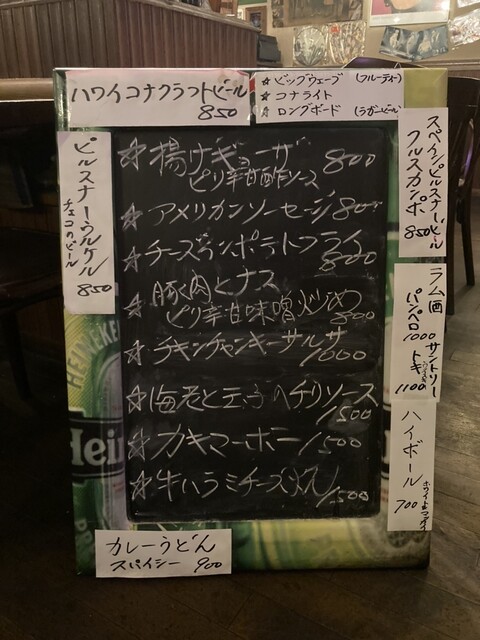 ハワイコナクラフトビール
850
☆ ビッグウェーブ (フルーティー)
☆ コナライト
☆ ロングボード (ラガービール)
ピルスナーウルケル
チェコのビール
850
☆揚げギョーザ 800
ピリ辛甘酢ソース
☆アメリカンソーセージ 800
☆チーズinポテトフライ
800
☆豚肉とナス
ピリ辛甘味噌炒め
800
☆チキンチャンキーサルサ
1000
☆海老と玉子のチリソース
1500
☆カキマーボー 1500
☆牛ハラミチーズ焼 1500
スペインピルスナービール
850
ラム酒
パンペロ
1000
サントリー
トキ
1100
ハイボール
700
カレーうどん
スパイシー 900
HEINEKEN
Hein